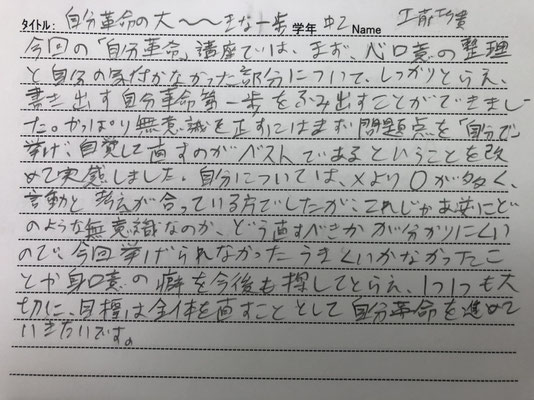 タイトル: 自分革命の大〜〜きな一歩 学年 中2 Name
今回の「自分革命」講座では、まず、心口意の整理
と自分の気付かなかった部分について、しっかりとらえ、
書き出す自分革命第一歩をふみ出すことができまし
た。やっぱり無意識を正すにはまず問題点を「自分で」
挙げ、自覚して直すのがベストであるということを改
めて実感しました。自分については、×より○が多く、
言動と考えが合っている方でしたが、これじゃあ逆にど
のような無意識なのか、どう直すべきかが分かりにくい
ので、今回挙げられなかったうまくいかなかったこ
とや身口意の癖を今後も探してとらえ、1つ1つも大
切に、目標は全体を直すこととして自分革命を進めて
いきたいです。